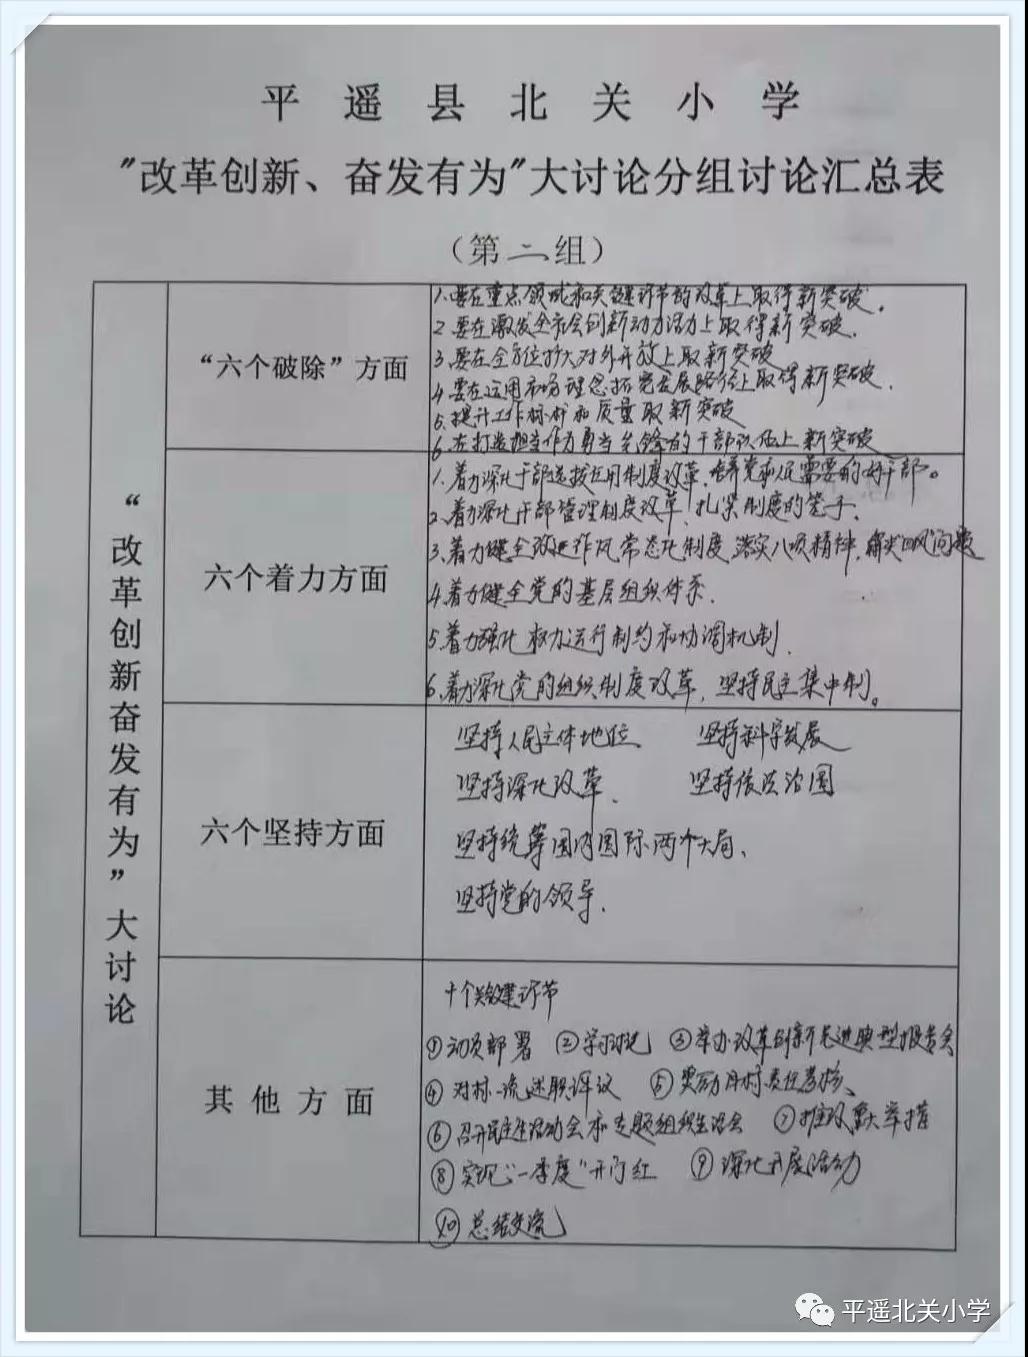 平遥县北关小学
"改革创新、奋发有为"大讨论分组讨论汇总表
（第二组）
“改革创新奋发有为”大讨论
“六个破除”方面
1.要在重点领域和关键环节的改革上取得新突破.
2.要在激发全社会创新动力活力上取得新突破.
3.要在全方位扩大对外开放上取新突破
4.要在运用市场理念拓宽发展路径上取得新突破.
5.提升工作标和质量取新突破
6.在打造担当作为勇当先锋的干部队伍上新突破
六个着力方面
1.着力深化干部选拔任用制度改革,培养党和人民需要的好干部。
2.着力深化干部管理制度改革,扎紧制度的笼子.
3.着力健全改进作风常态化制度,落实八项精神,解决四风问题
4.着力健全党的基层组织体系.
5.着力强化权力运行制约和协调机制.
6.着力深化党的组织制度改革,坚持民主集中制。
六个坚持方面
坚持人民主体地位、 坚持科学发展
坚持深化改革、 坚持依法治国
坚持统筹国内国际两个大局、
坚持党的领导.
其他方面
十个关键环节
①动员部署 ②学习 ③举办改革创新先进典型报告会
④对标一流述职评议 ⑤奖励目标责任考核、
⑥召开民主生活会和专题组织生活会 ⑦推重大举措
⑧实现“一季度”开门红 ⑨深化开展活动
⑩总结交流
平遥北关小学